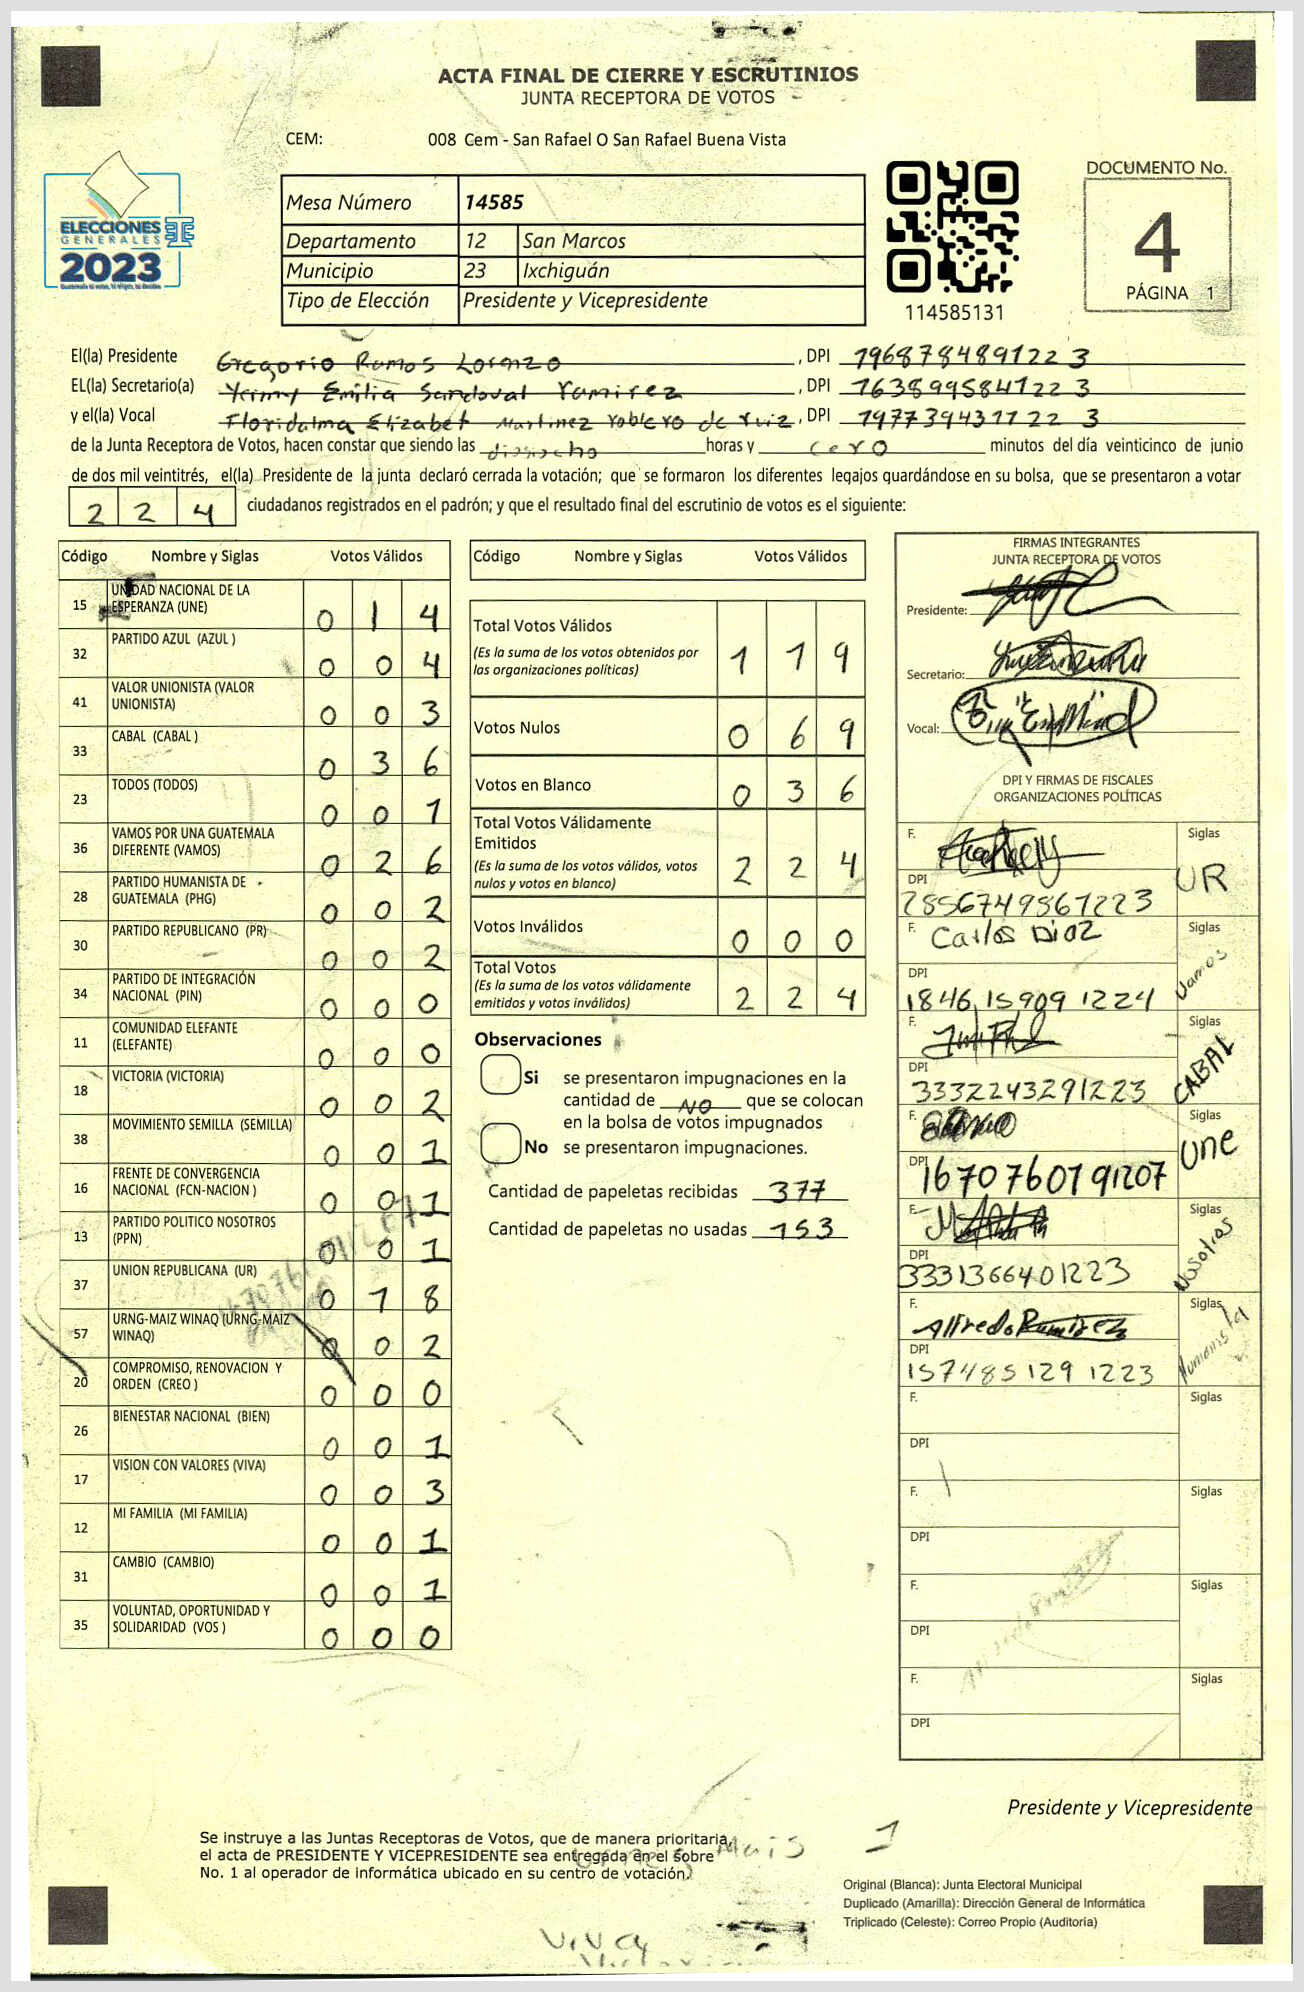 ACTA FINAL DE CIERRE Y ESCRUTINIOS
JUNTA RECEPTORA DE VOTOS
CEM: 008 Cem - San Rafael O San Rafael Buena Vista
ELECCIONES
GENERALES
2023
Mesa Número 14585
Departamento 12 San Marcos
Municipio 23 Ixchiguán
Tipo de Elección Presidente y Vicepresidente
114585131
DOCUMENTO No.
4
PÁGINA 1
El(la) Presidente Gregorio Ramos Lorenzo, DPI 1968784891223
EL(la) Secretario(a) Yenny Emilia Sandoval Ramirez, DPI 1638995841223
y el(la) Vocal Floridalma Elizabet Martinez Roblero de Ruiz, DPI 1977394311223
de la Junta Receptora de Votos, hacen constar que siendo las diosiocho horas y cero minutos del día veinticinco de junio
de dos mil veintitrés, el(la) Presidente de la junta declaró cerrada la votación; que se formaron los diferentes legajos guardándose en su bolsa, que se presentaron a votar
224 ciudadanos registrados en el padrón; y que el resultado final del escrutinio de votos es el siguiente:
Código Nombre y Siglas Votos Válidos
15 UNIDAD NACIONAL DE LA ESPERANZA (UNE) 0 1 4
32 PARTIDO AZUL (AZUL ) 0 0 4
41 VALOR UNIONISTA (VALOR UNIONISTA) 0 0 3
33 CABAL (CABAL ) 0 3 6
23 TODOS (TODOS) 0 0 1
36 VAMOS POR UNA GUATEMALA DIFERENTE (VAMOS) 0 2 6
28 PARTIDO HUMANISTA DE GUATEMALA (PHG) 0 0 2
30 PARTIDO REPUBLICANO (PR) 0 0 2
34 PARTIDO DE INTEGRACIÓN NACIONAL (PIN) 0 0 0
11 COMUNIDAD ELEFANTE (ELEFANTE) 0 0 0
18 VICTORIA (VICTORIA) 0 0 2
38 MOVIMIENTO SEMILLA (SEMILLA) 0 0 1
16 FRENTE DE CONVERGENCIA NACIONAL (FCN-NACION ) 0 0 1
13 PARTIDO POLITICO NOSOTROS (PPN) 0 0 1
37 UNION REPUBLICANA (UR) 0 1 8
57 URNG-MAIZ WINAQ (URNG-MAIZ WINAQ) 0 0 2
20 COMPROMISO, RENOVACION Y ORDEN (CREO ) 0 0 0
26 BIENESTAR NACIONAL (BIEN) 0 0 1
17 VISION CON VALORES (VIVA) 0 0 3
12 MI FAMILIA (MI FAMILIA) 0 0 1
31 CAMBIO (CAMBIO) 0 0 1
35 VOLUNTAD, OPORTUNIDAD Y SOLIDARIDAD (VOS ) 0 0 0
Código Nombre y Siglas Votos Válidos
Total Votos Válidos 1 1 9
(Es la suma de los votos obtenidos por
las organizaciones políticas)
Votos Nulos 0 6 9
Votos en Blanco 0 3 6
Total Votos Válidamente
Emitidos 2 2 4
(Es la suma de los votos válidos, votos
nulos y votos en blanco)
Votos Inválidos 0 0 0
Total Votos 2 2 4
(Es la suma de los votos válidamente
emitidos y votos inválidos)
Observaciones
Si se presentaron impugnaciones en la
cantidad de NO que se colocan
en la bolsa de votos impugnados
No se presentaron impugnaciones.
Cantidad de papeletas recibidas 377
Cantidad de papeletas no usadas 153
FIRMAS INTEGRANTES
JUNTA RECEPTORA DE VOTOS
Presidente:
Secretario:
Vocal:
DPI Y FIRMAS DE FISCALES
ORGANIZACIONES POLÍTICAS
F. Siglas UR
DPI 2856749861223
F. Carlos Diaz Siglas Vamos
DPI 1846 15909 1224
F. Siglas CABAL
DPI 3332243291223
F. Siglas une
DPI 1670760791207
F. Siglas Nosotros
DPI 3331366401223
F. Alfredo Ramirez Siglas Humanista
DPI 157485129 1223
F. Siglas
DPI
F. Siglas
DPI
F. Siglas
DPI
F. Siglas
DPI
Presidente y Vicepresidente
Se instruye a las Juntas Receptoras de Votos, que de manera prioritaria,
el acta de PRESIDENTE Y VICEPRESIDENTE sea entregada en el sobre
No. 1 al operador de informática ubicado en su centro de votación.
Mais 1
Original (Blanca): Junta Electoral Municipal
Duplicado (Amarilla): Dirección General de Informática
Triplicado (Celeste): Correo Propio (Auditoría)
Viva